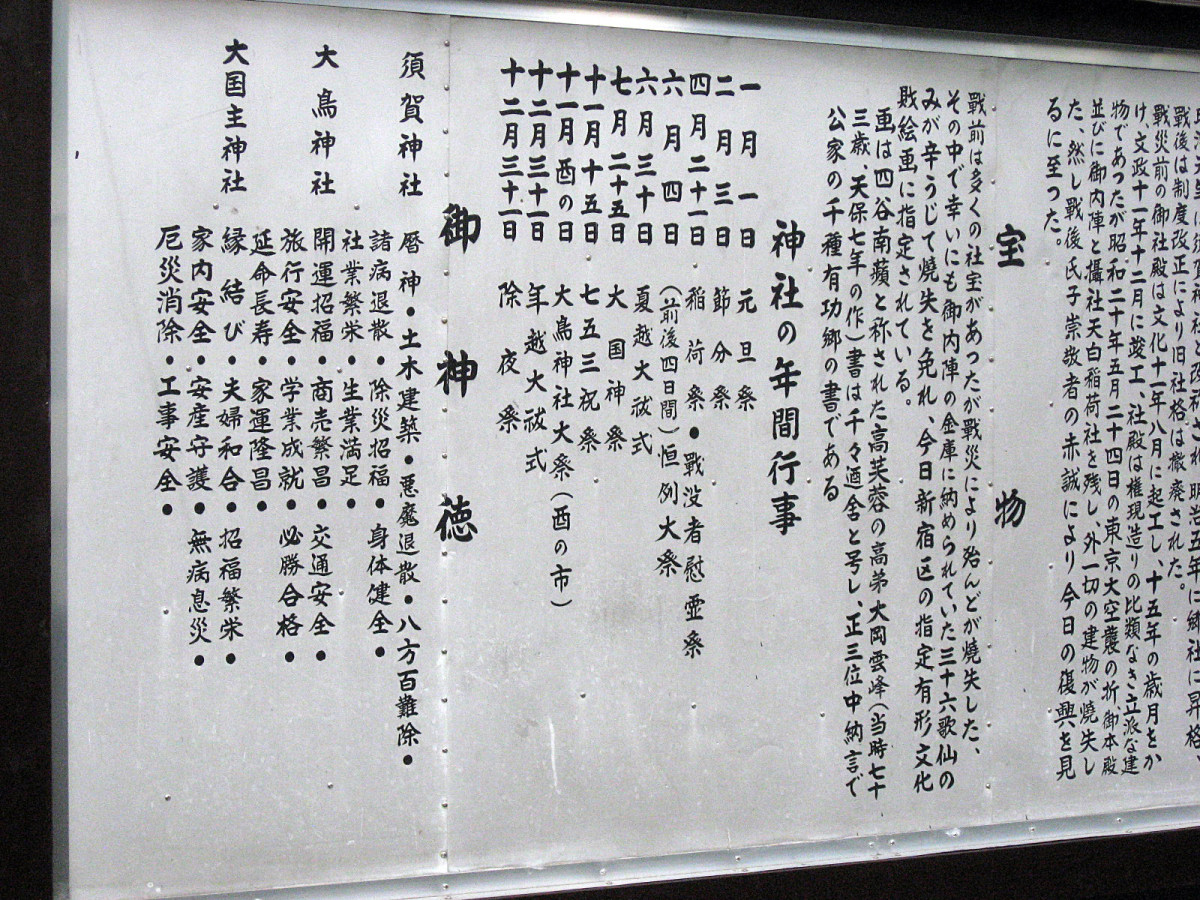 明治五年に郷社に昇格、
戰後は制度改正により旧社格は撤廃された。
戰災前の御社殿は文化十一年八月に起工し、十五年の歳月をか
け、文政十一年十二月に竣工、社殿は権現造りの比類なき立派な建
物であったが昭和二十年五月二十四日の東京大空襲の折、御本殿
並びに御内陣と攝社天白稲荷社を残し、外一切の建物が燒失し
た、然し戰後氏子崇敬者の赤誠により今日の復興を見
るに至った。
宝物
戰前は多くの社宝があったが戰災により殆んどが燒失した、
その中で幸いにも御内陣の金庫に納められていた三十六歌仙の
みが辛うじて燒失を免れ、今日新宿区の指定有形文化
敗絵画に指定されている。
画は四谷南蘋と称された高芙蓉の高弟大岡雲峰(当時七十
三歳、天保七年の作)書は千々廼舎と号し、正三位中納言で
公家の千種有功郷の書である
神社の年間行事
一月一日 元旦祭
二月三日 節分祭
四月二十一日 稲荷祭・戰没者慰霊祭
六月四日 (前後四日間)恒例大祭
六月三十日 夏越大祓式
七月二十五日 大国神祭
十一月十五日 七五三祝祭
十一月酉の日 大鳥神社大祭(酉の市)
十二月三十一日 年越大祓式
十二月三十一日 除夜祭
御神徳
須賀神社 暦神・土木建築・悪魔退散・八方百難除・
諸病退散・除災招福・身体健全・
社業繁栄・生業満足・
大鳥神社 開運招福・商売繁昌・交通安全・
旅行安全・学業成就・必勝合格・
延命長寿・家運隆昌・
大国主神社 縁結び・夫婦和合・招福繁栄・
家内安全・安産守護・無病息災・
厄災消除・工事安全・